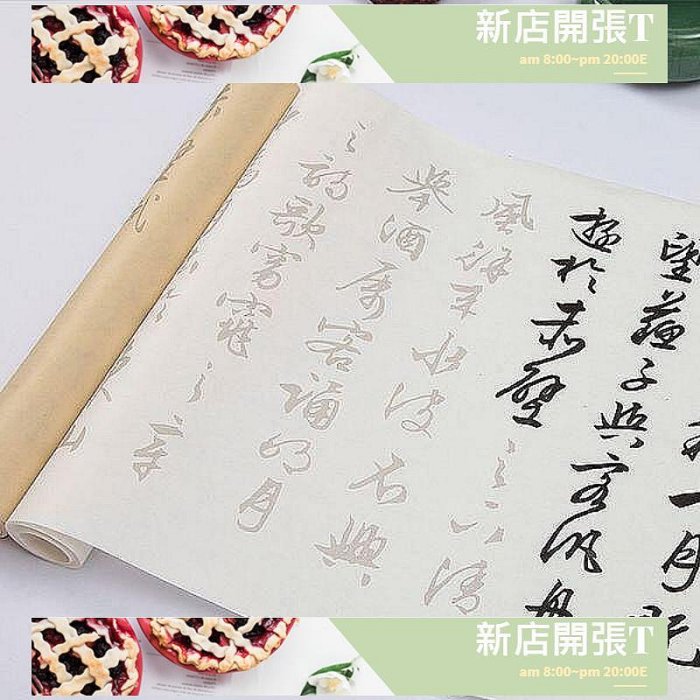 新店開張T
am 8:00~pm 20:00E
七月既
望蘇子與客汎舟
遊於赤壁之下清
風徐來水波不興
舉酒屬客誦明月
之詩歌窈窕之章
新店開張T
am 8:00~pm 20:00E